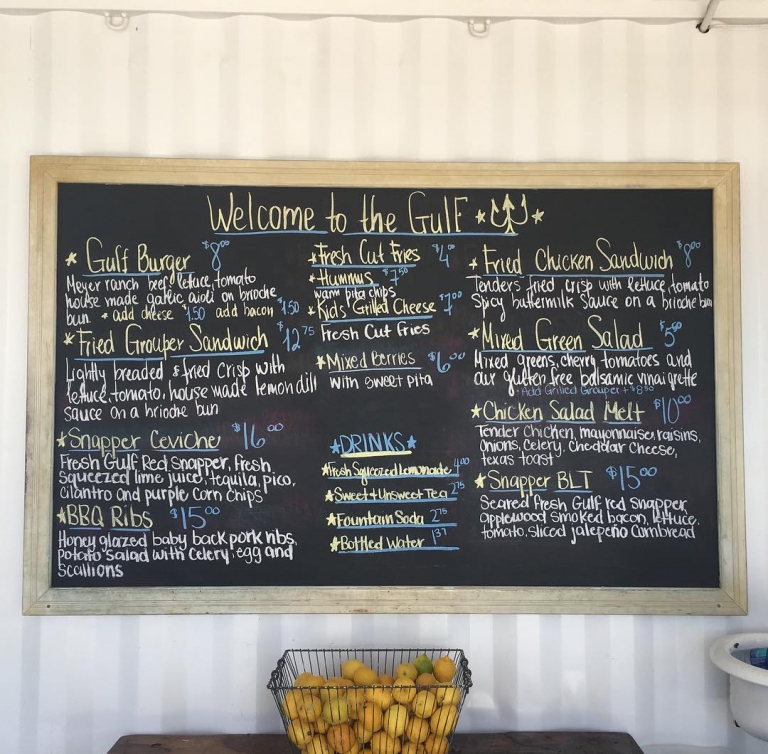 Welcome to the Gulf
Gulf Burger $8.00
Meyer ranch beef, lettuce, tomato
house made garlic aioli on brioche
bun. + add cheese $1.50 add bacon $1.50
Fried Grouper Sandwich $12.75
Lightly breaded & fried crisp with
lettuce, tomato, house made lemon dill
sauce on a brioche bun
Snapper Ceviche $16.00
Fresh Gulf Red Snapper, fresh
squeezed lime juice, tequila, pico,
cilantro and purple corn chips
BBQ Ribs $15.00
Honey glazed baby back pork ribs,
potato salad with celery, egg and
scallions
Fresh Cut Fries $4.00
Hummus $7.50
warm pita chips
Kids' Grilled Cheese $7.00
Fresh Cut Fries
Mixed Berries $6.00
with sweet pita
DRINKS
Fresh Squeezed Lemonade 4.00
Sweet & Unsweet Tea 2.75
Fountain Soda 2.75
Bottled Water 1.37
Fried Chicken Sandwich $8.00
Tenders fried crisp with lettuce, tomato
Spicy buttermilk sauce on a brioche bun
Mixed Green Salad $5.50
Mixed greens, cherry tomatoes and
our gluten free balsamic vinaigrette
Add Grilled Grouper + $8.50
Chicken Salad Melt $10.00
Tender chicken, mayonnaise, raisins,
onions, celery, cheddar cheese,
texas toast
Snapper BLT $15.00
Seared fresh Gulf red snapper,
applewood smoked bacon, lettuce,
tomato, sliced jalapeño cornbread